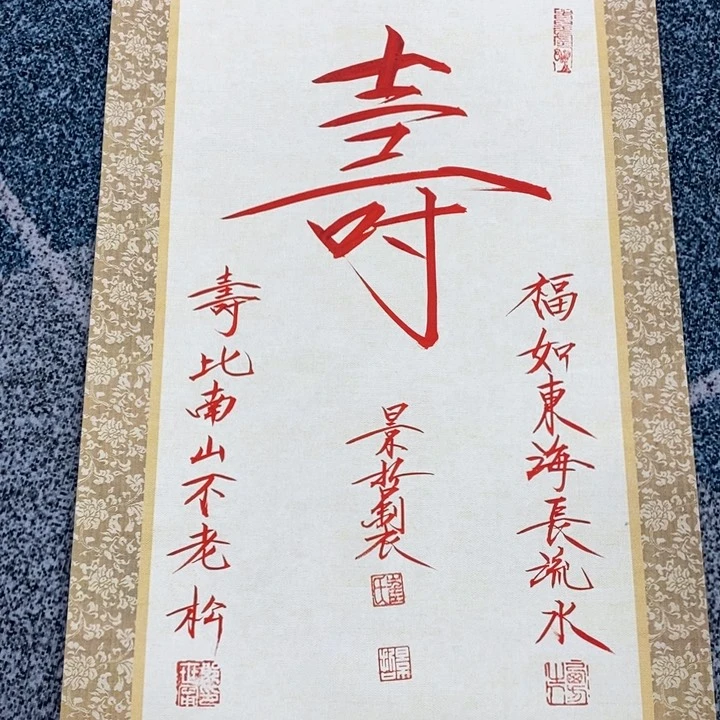 壽
福如東海長流水
壽比南山不老松
景哲製